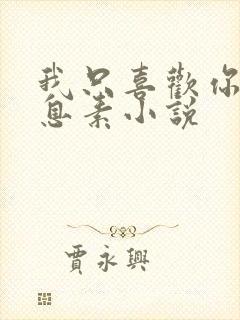 我只喜歡你
息素小說
賈永興